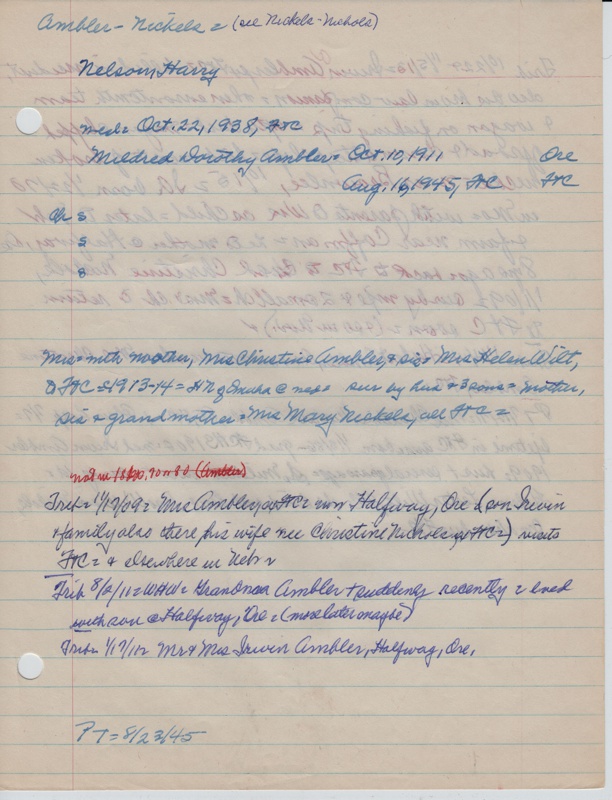 Ambler - Nickels = (see Nickels-Nichols)
Nelson, Harry
med = Oct. 22, 1938, FtC
Mildred Dorothy Ambler = Oct. 10, 1911 Ore
Aug. 16, 1945, FtC FtC
Ch s
s
s
Mrs = with mother, Mrs Christine Ambler, & sis = Mrs Helen Wilt,
to FtC = 1913-14 = @ nees sur by hus & 3 sons = mother,
sis & grandmother = Mrs Mary Nickels, all FtC =
not in 1880, 90 or 80 (Ambler)
Trib = 1/17/09 = Mrs Ambler, FtC = now Halfway, Ore = (son Irwin
& family also there, his wife nee Christine Nichols, FtC =) visits
FtC = & elsewhere in Nebr =
Trib 8/2/11 = = Grandma Ambler recently = lived
with son @ Halfway, Ore = (more later maybe)
Trib = 1/17/11 = Mr & Mrs Irwin Ambler, Halfway, Ore.
PT = 8/23/45